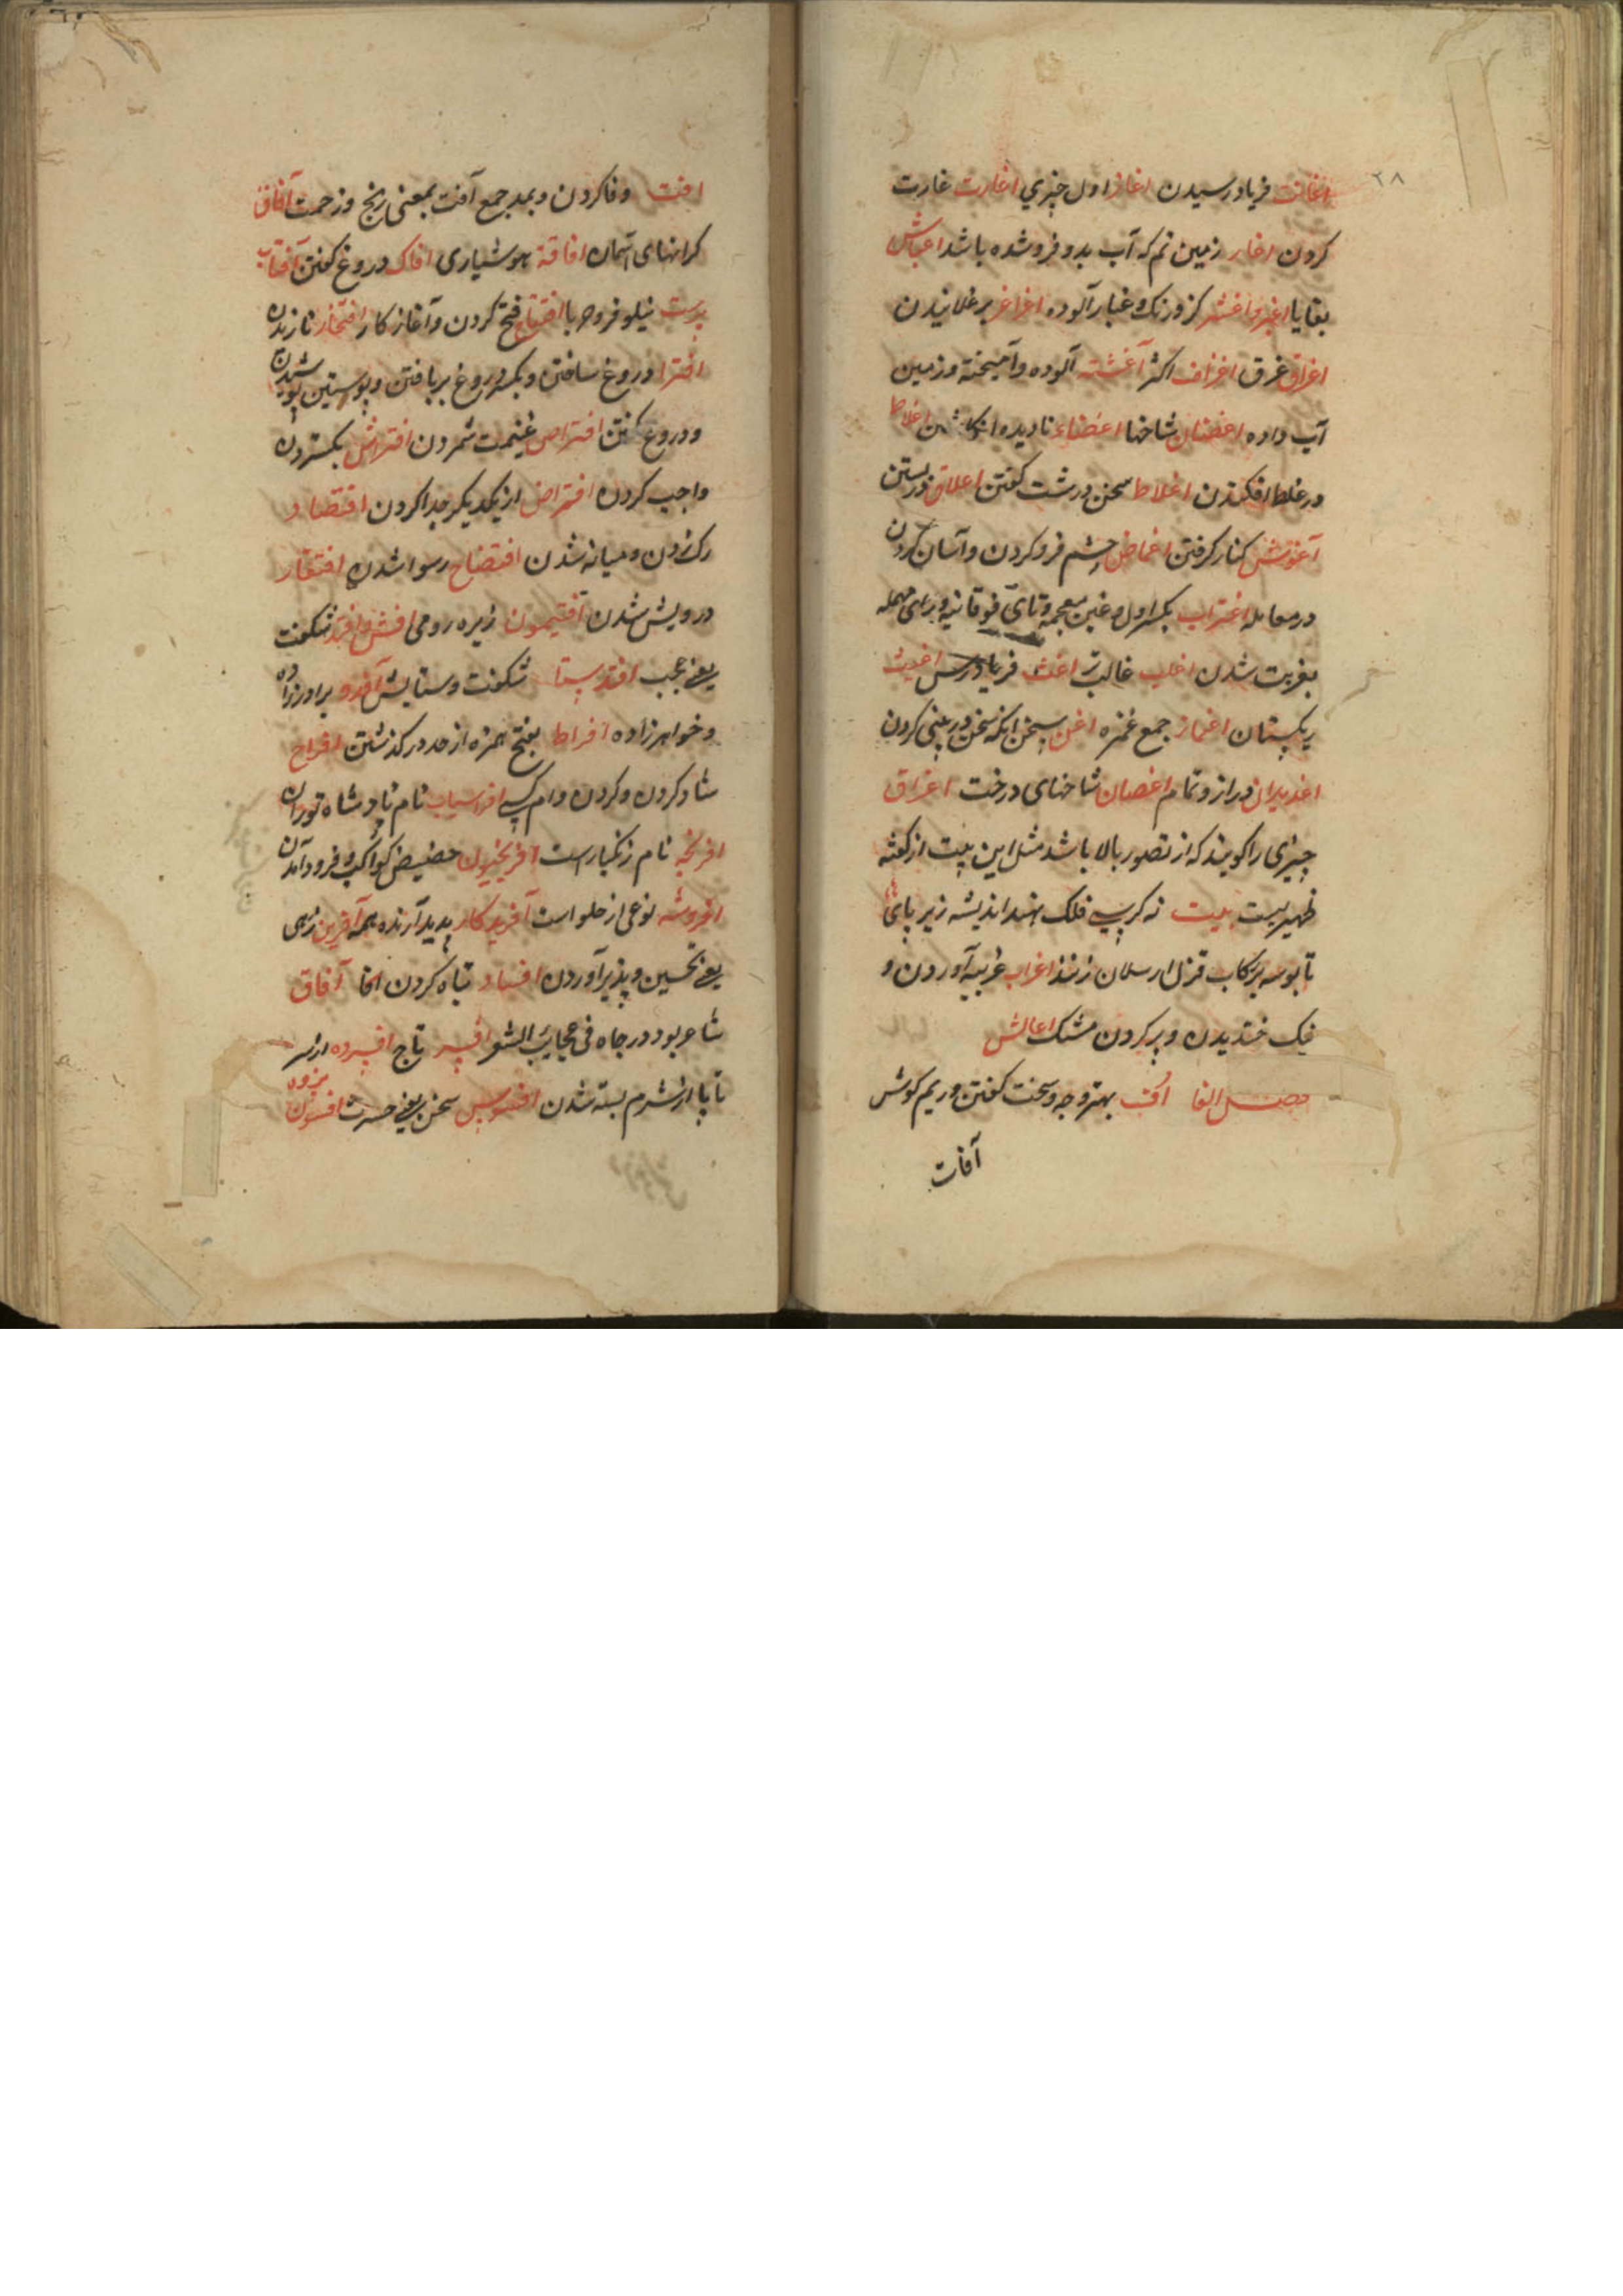 ۲۸
اغاثت فریاد رسیدن اغاز اول چیزی اغارت غارت
کردن اغار زمین نم که آب بدو فروشده باشد اغباش
بقایا اغبر و اغثر کز و رنک غبار آلوده اغراغر برغلانیدن
اغراق غرق اغزاف اکثر آغشته آلوده و آمیخته و زمین
آب داده اغضان شاخها اغضاء نادیده انکاشتن اغلاط
در غلط افکندن اغلاط سخن درشت کفتن اغلاق در بستن
آغوش کنار کرفتن اغماض چشم فرو کردن و آسان کردن
در معامله اغتراب بکسر اول و غین معجمه و تای فوقانیه و برای مهمله
بغربت شدن اغلب غالب تر اغث فریاد رس
ریکستان اغماز جمع غمزه اغن سخن انکه سخن در بینی کردن
دراز و تمام اغصان شاخهای درخت اغراق
چیزی را کویند که از تصور بالا باشد مثل این بیت از کفته
ظهیر بیت نه کرسی فلک نهد اندیشه زیر پای
تا بوسه بر رکاب قزل ارسلان زند اغراب غریبه آوردن و
نیک خندیدن و پر کردن مشک اغالش
فصل الفا اف بهتر و جه و سخت کفتن و ریم کوش
آفات
افت وفا کردن و بمد جمع آفت بمعنی رنج و زحمت آفاق
کرانهای آسمان افاقة هوشیاری افاک دروغ کفتن آفتاب
پرست نیلوفر و حربا افتتاح فتح کردن و آغاز کار افتخار نازیدن
افترا دروغ ساختن و بکسر دروغ بر بافتن و پوستین پوشیدن
و دروغ کفتن افتراص غنیمت شمردن افتراش بکستردن
واجب کردن افتراض از یکدیکر جدا کردن افتصاد
رک زدن و میانه شدن افتضاح رسوا شدن افتقار
درویش شدن افتیمون زیره رومی شکفت
یعنی عجب افدستا شکفت و ستایش آفدر برادرزاده
و خواهرزاده افراط بفتح همزه از حد در کذشتن افراح
شاد کردن و کردن وام کسی افراسیاب نام پادشاه توران
افرنجه نام زنکبار است حضیض کواکب و فرود آمدن
افروشه نوعی از حلوا است آفریدکار پدید آرنده همه آفرین زهی
یعنی تحسین و پذیر آوردن افساد تباه کردن آفاق
شاعر بود در جاه فی عجایب افسر تاج افسرده از سر
تا پا از شرم بسته شدن افسوس سخن یعنی حسرت افسون